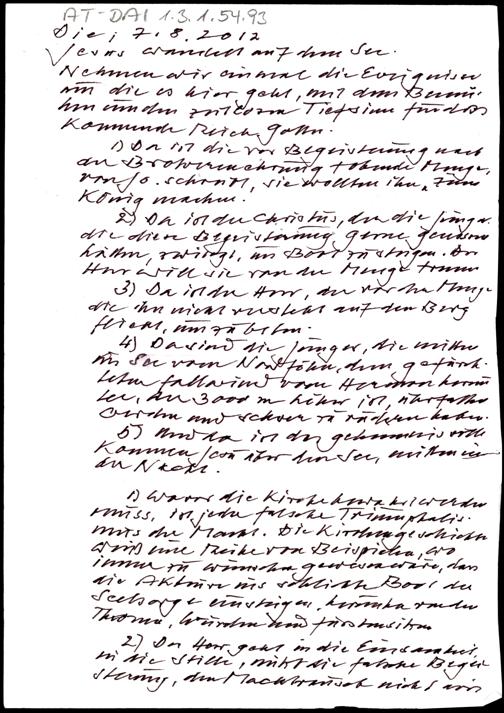 AT-DAI 1.3.1.54.93
Die, 7.8.2012
Jesus wandelt auf dem See.
Nehmen wir einmal die Ereignisse
um die es hier geht, mit dem
hin und den Tiefsinn für das
Kommende Reich Gottes.
1) Da ist die vor Begeisterung nach
der Brotvermehrung tobende Menge,
von Jo. schreibt, sie wollten ihn "zum
König machen.
2) Da ist der Christus, der die Jünger,
die diese Begeisterung gerne genossen
hätten, zwingt, ins Boot zu steigen. Der
Herr will sie von der Menge trennen
3) Da ist der Herr, der vor der Menge
die ihn nicht versteht auf den Berg
flieht, um zu beten.
4) Da sind die Jünger, die mitten
im See vom Nordföhn, dem gefürch-
teten Fallwind vom Hermon herun-
ter, der 3000 m höher ist, überfallen
werden und schwer zu rudern haben.
5) Und da ist das geheimnisvolle
Kommen Jesu über den See, mitten in
der Nacht.
1) Wovor die Kirche bewahrt werden
muss, ist jede falsche Triumphalis-
mus der Macht. Die Kirchengeschichte
wird eine Reihe von Beispielen, wo
immer zu wünschen gewesen wäre, dass
die Akteure ins schlichte Boot der
Seelsorge einsteigen, herunter von den
Thronen, Würden und Fürstensitzen
2) Der Herr geht in die Einsamkeit,
in die Stille, nützt die falsche Begei-
sterung, den Machtrausch nicht aus